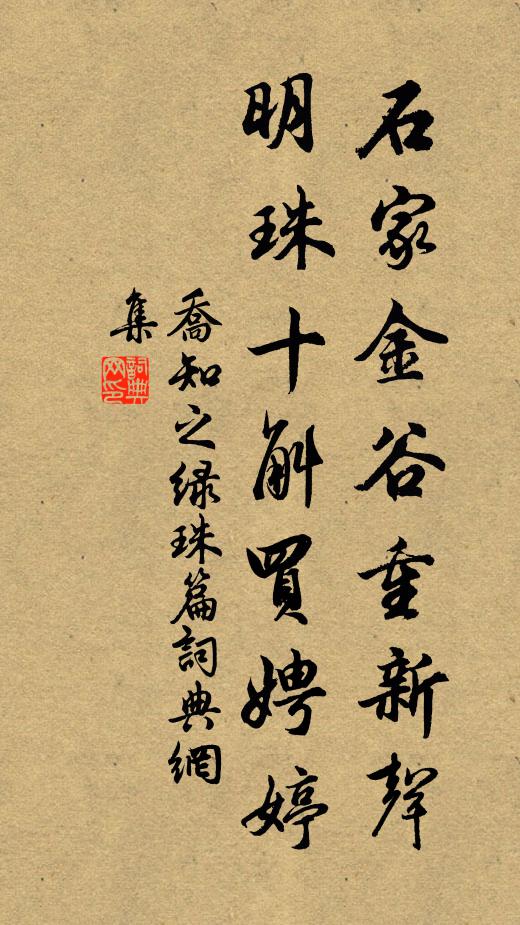 石家金谷重新聲
明珠十斛買娉婷
喬知之緑珠篇詞典網
集
詞典
网印